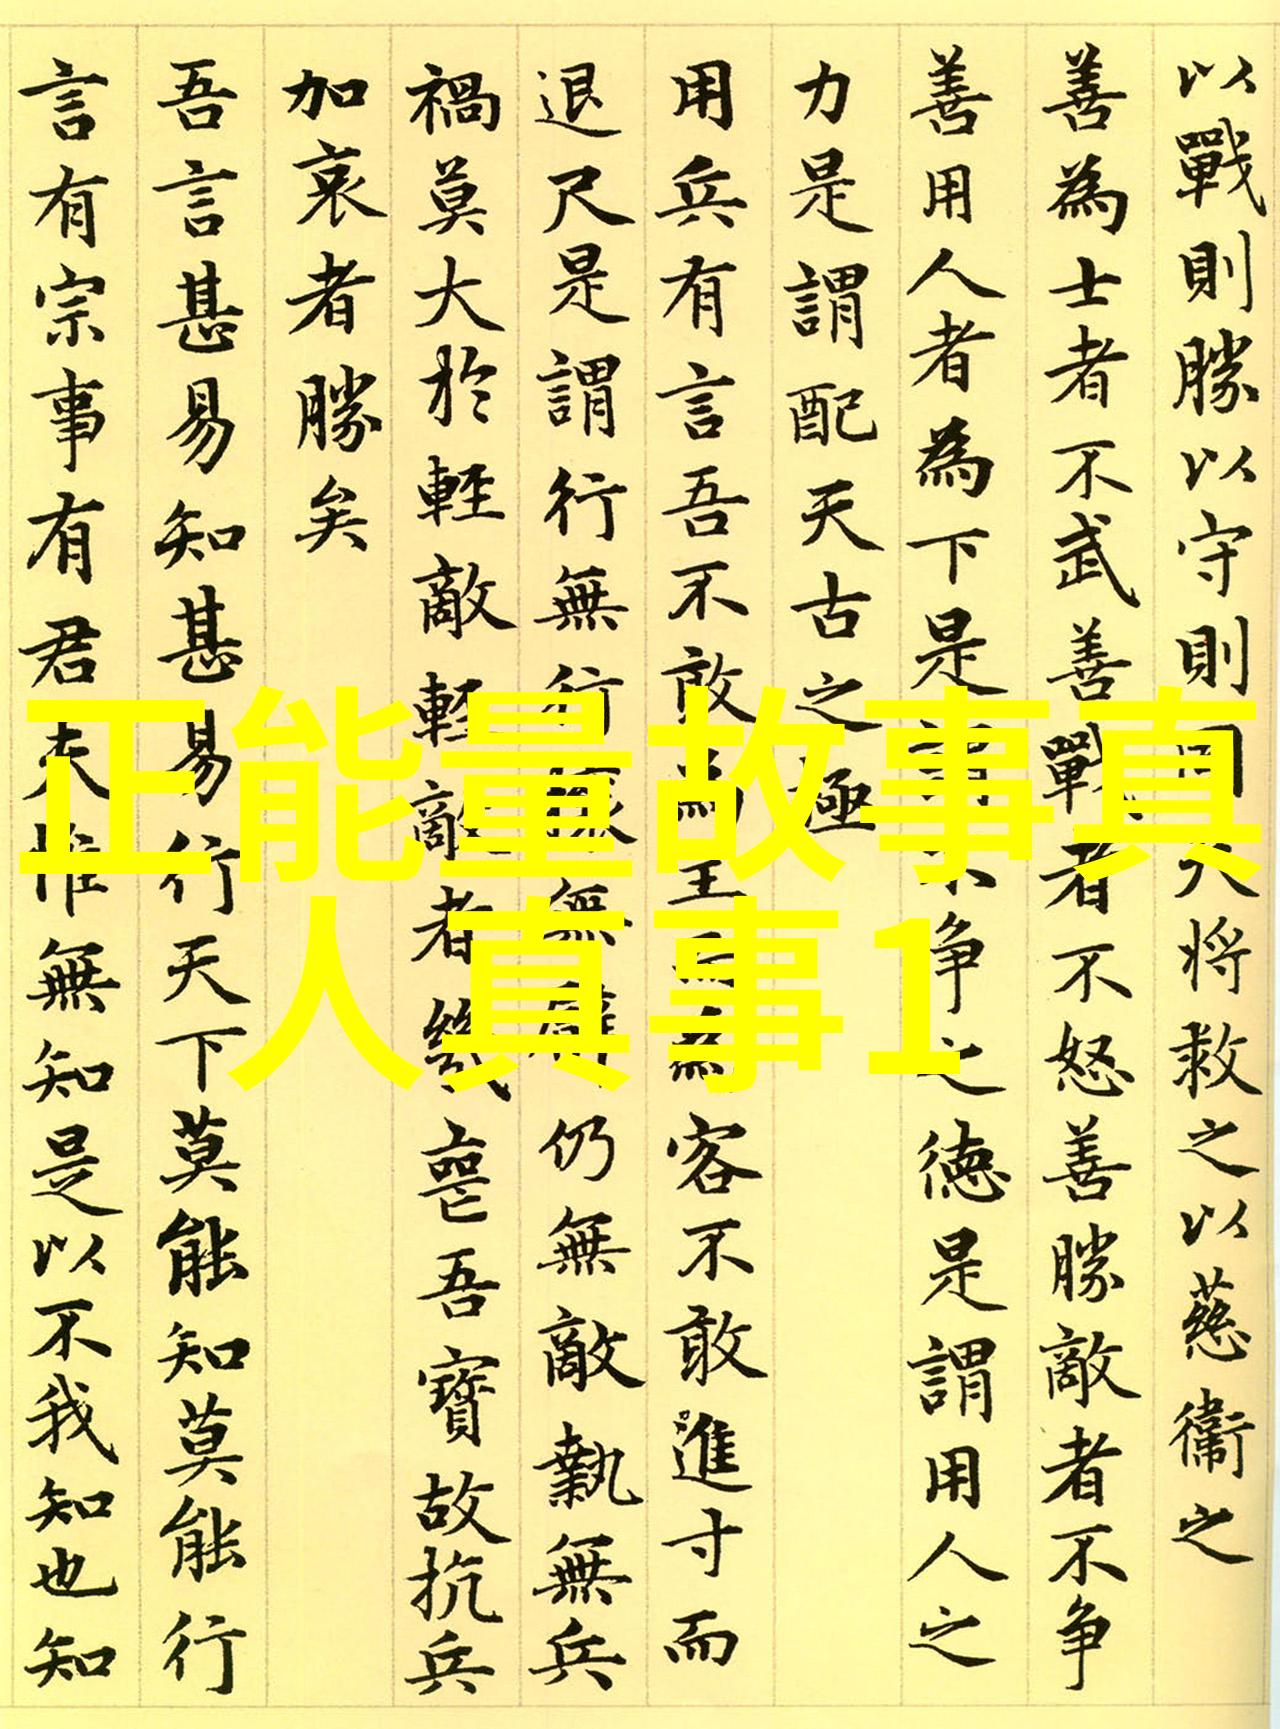 以戰則勝以守則固天將救之以慈衞之
善為士者不武善戰者不怒善勝敵者不争
善用人者為下是謂不争之德是謂用人之
力是謂配天古之極
用兵有言吾不敢為主而為客不敢進寸而
退尺是謂行無行攘無臂仍無敵執無兵
禍莫大於輕敵輕敵者幾喪吾寶故抗兵
加哀者勝矣
吾言甚易知甚易行天下莫能知莫能行
言有宗事有君夫惟無知是以不我知也知
正能量故事真
人真事1